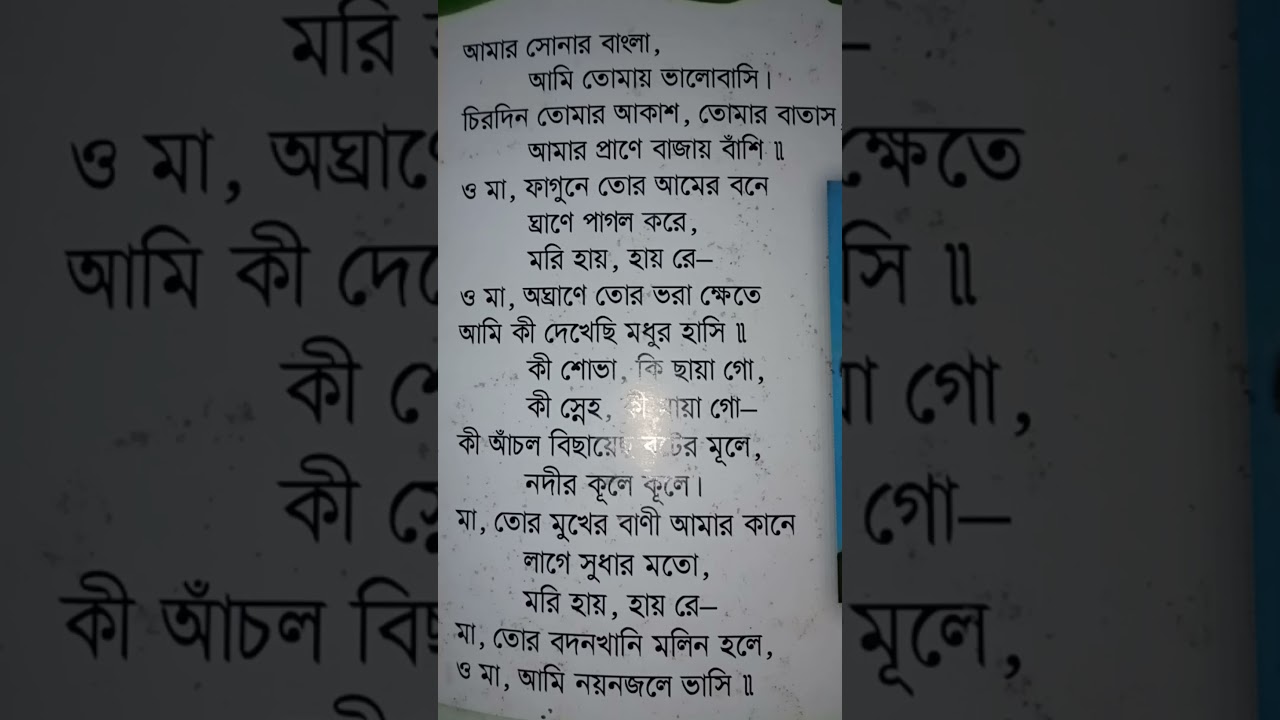 আমার সোনার বাংলা,
আমি তোমায় ভালোবাসি।
চিরদিন তোমার আকাশ, তোমার বাতাস
আমার প্রাণে বাজায় বাঁশি ॥
ও মা, ফাগুনে তোর আমের বনে
ঘ্রাণে পাগল করে,
মরি হায়, হায় রে—
ও মা, অঘ্রাণে তোর ভরা ক্ষেতে
আমি কী দেখেছি মধুর হাসি ॥
কী শোভা, কি ছায়া গো,
কী স্নেহ, কী মায়া গো—
কী আঁচল বিছায়েছ বটের মূলে,
নদীর কূলে কূলে।
মা, তোর মুখের বাণী আমার কানে
লাগে সুধার মতো,
মরি হায়, হায় রে—
মা, তোর বদনখানি মলিন হলে,
ও মা, আমি নয়নজলে ভাসি ॥